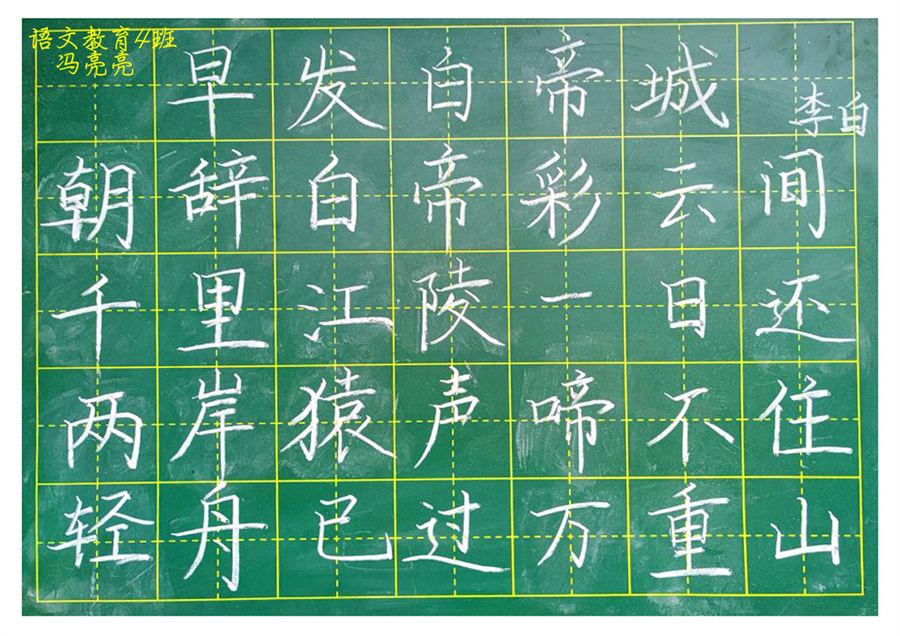 语文教育4班
冯亮亮
早发自帝城
李白
朝辞白帝彩云间
千里江陵一日还
两岸猿声啼不住
轻舟已过万重山